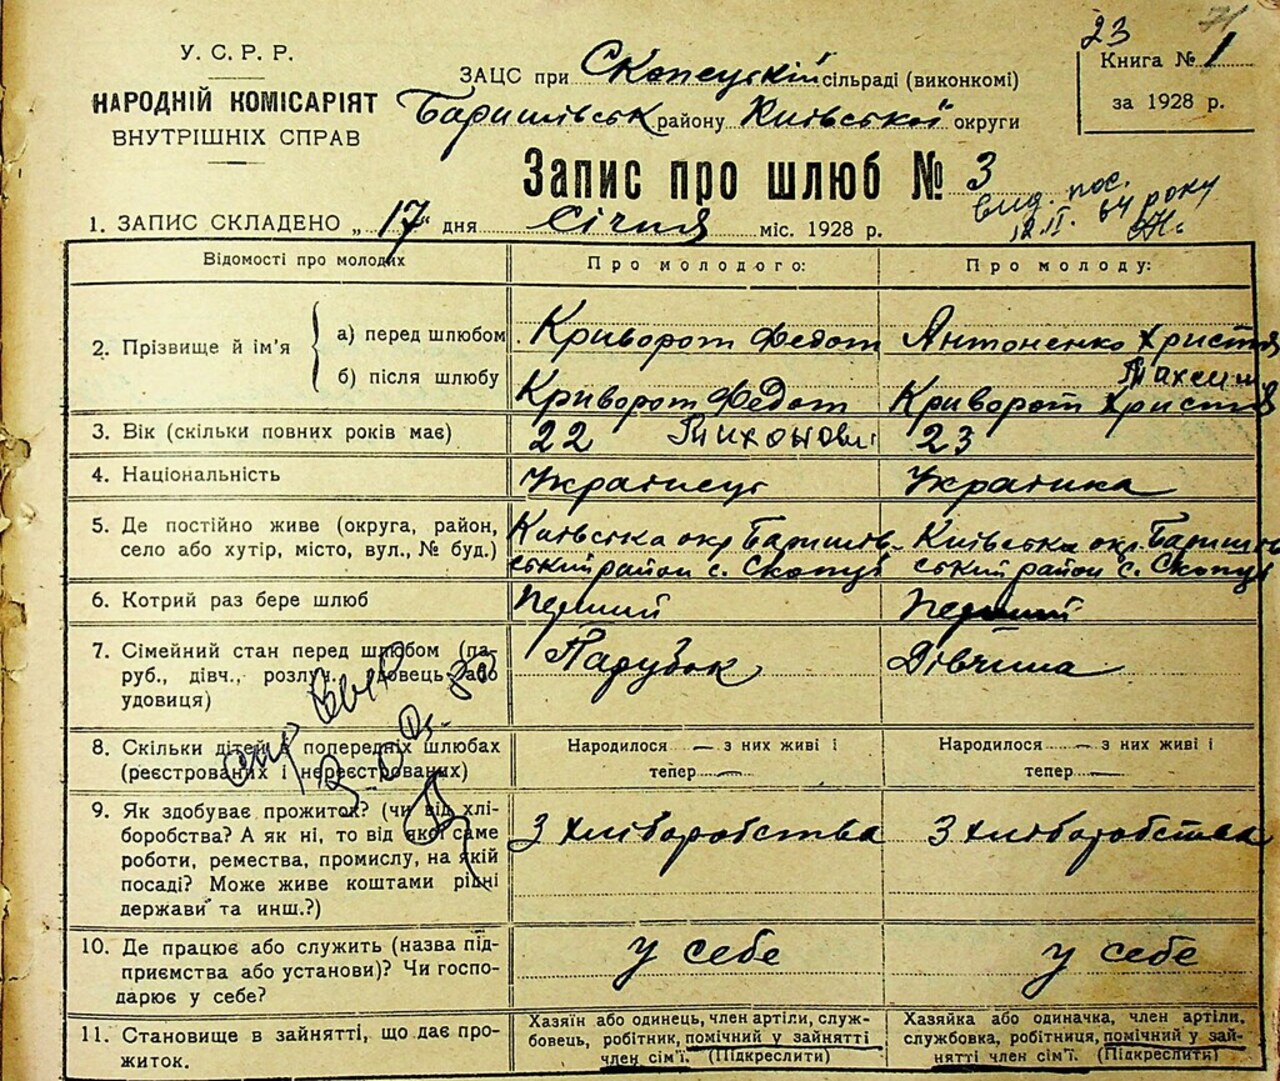 23
У. С. Р. Р.
НАРОДНІЙ КОМІСАРІЯТ
ВНУТРІШНІХ СПРАВ
ЗАЦС при Скопецькій сільраді (виконкомі)
Баришівськ району Київської округи
Книга № 1
за 1928 р.
Запис про шлюб № 3
вид. пос.
12.II. 64 року
1. ЗАПИС СКЛАДЕНО „17“ дня Січня міс. 1928 р.
Відомості про молодих
Про молодого:
Про молоду:
2. Прізвище й ім'я
а) перед шлюбом
Криворот Федот
Антоненко Христя
б) після шлюбу
Криворот Федот
Криворот Христя
3. Вік (скільки повних років має)
22
23
4. Національність
Українець
Українка
5. Де постійно живе (округа, район,
село або хутір, місто, вул., № буд.)
Київська окр Баришів-
ський район с. Скопці
Київська окр. Баришів
ський район с. Скопці
6. Котрий раз бере шлюб
Перший
Перший
7. Сімейний стан перед шлюбом (па-
руб., дівч., розлуч., вдовець або
удовиця)
Парубок
Дівчина
8. Скільки дітей в попередніх шлюбах
(реєстрованих і нереєстрованих)
Народилося — з них живі і
тепер —
Народилося — з них живі і
тепер —
9. Як здобуває прожиток? (чи від хлі-
боробства? А як ні, то від якої саме
роботи, ремества, промислу, на якій
посаді? Може живе коштами рідні
держави та инш.?)
З хліборобства
З хліборобства
10. Де працює або служить (назва під-
приємства або установи)? Чи госпо-
дарює у себе?
у себе
у себе
11. Становище в зайнятті, що дає про-
житок.
Хазяїн або одинець, член артіли, служ-
бовець, робітник, помічний у зайнятті
член сім'ї. (Підкреслити)
Хазяйка або одиначка, член артіли,
службовка, робітниця, помічний у зай-
нятті член сім'ї. (Підкреслити)